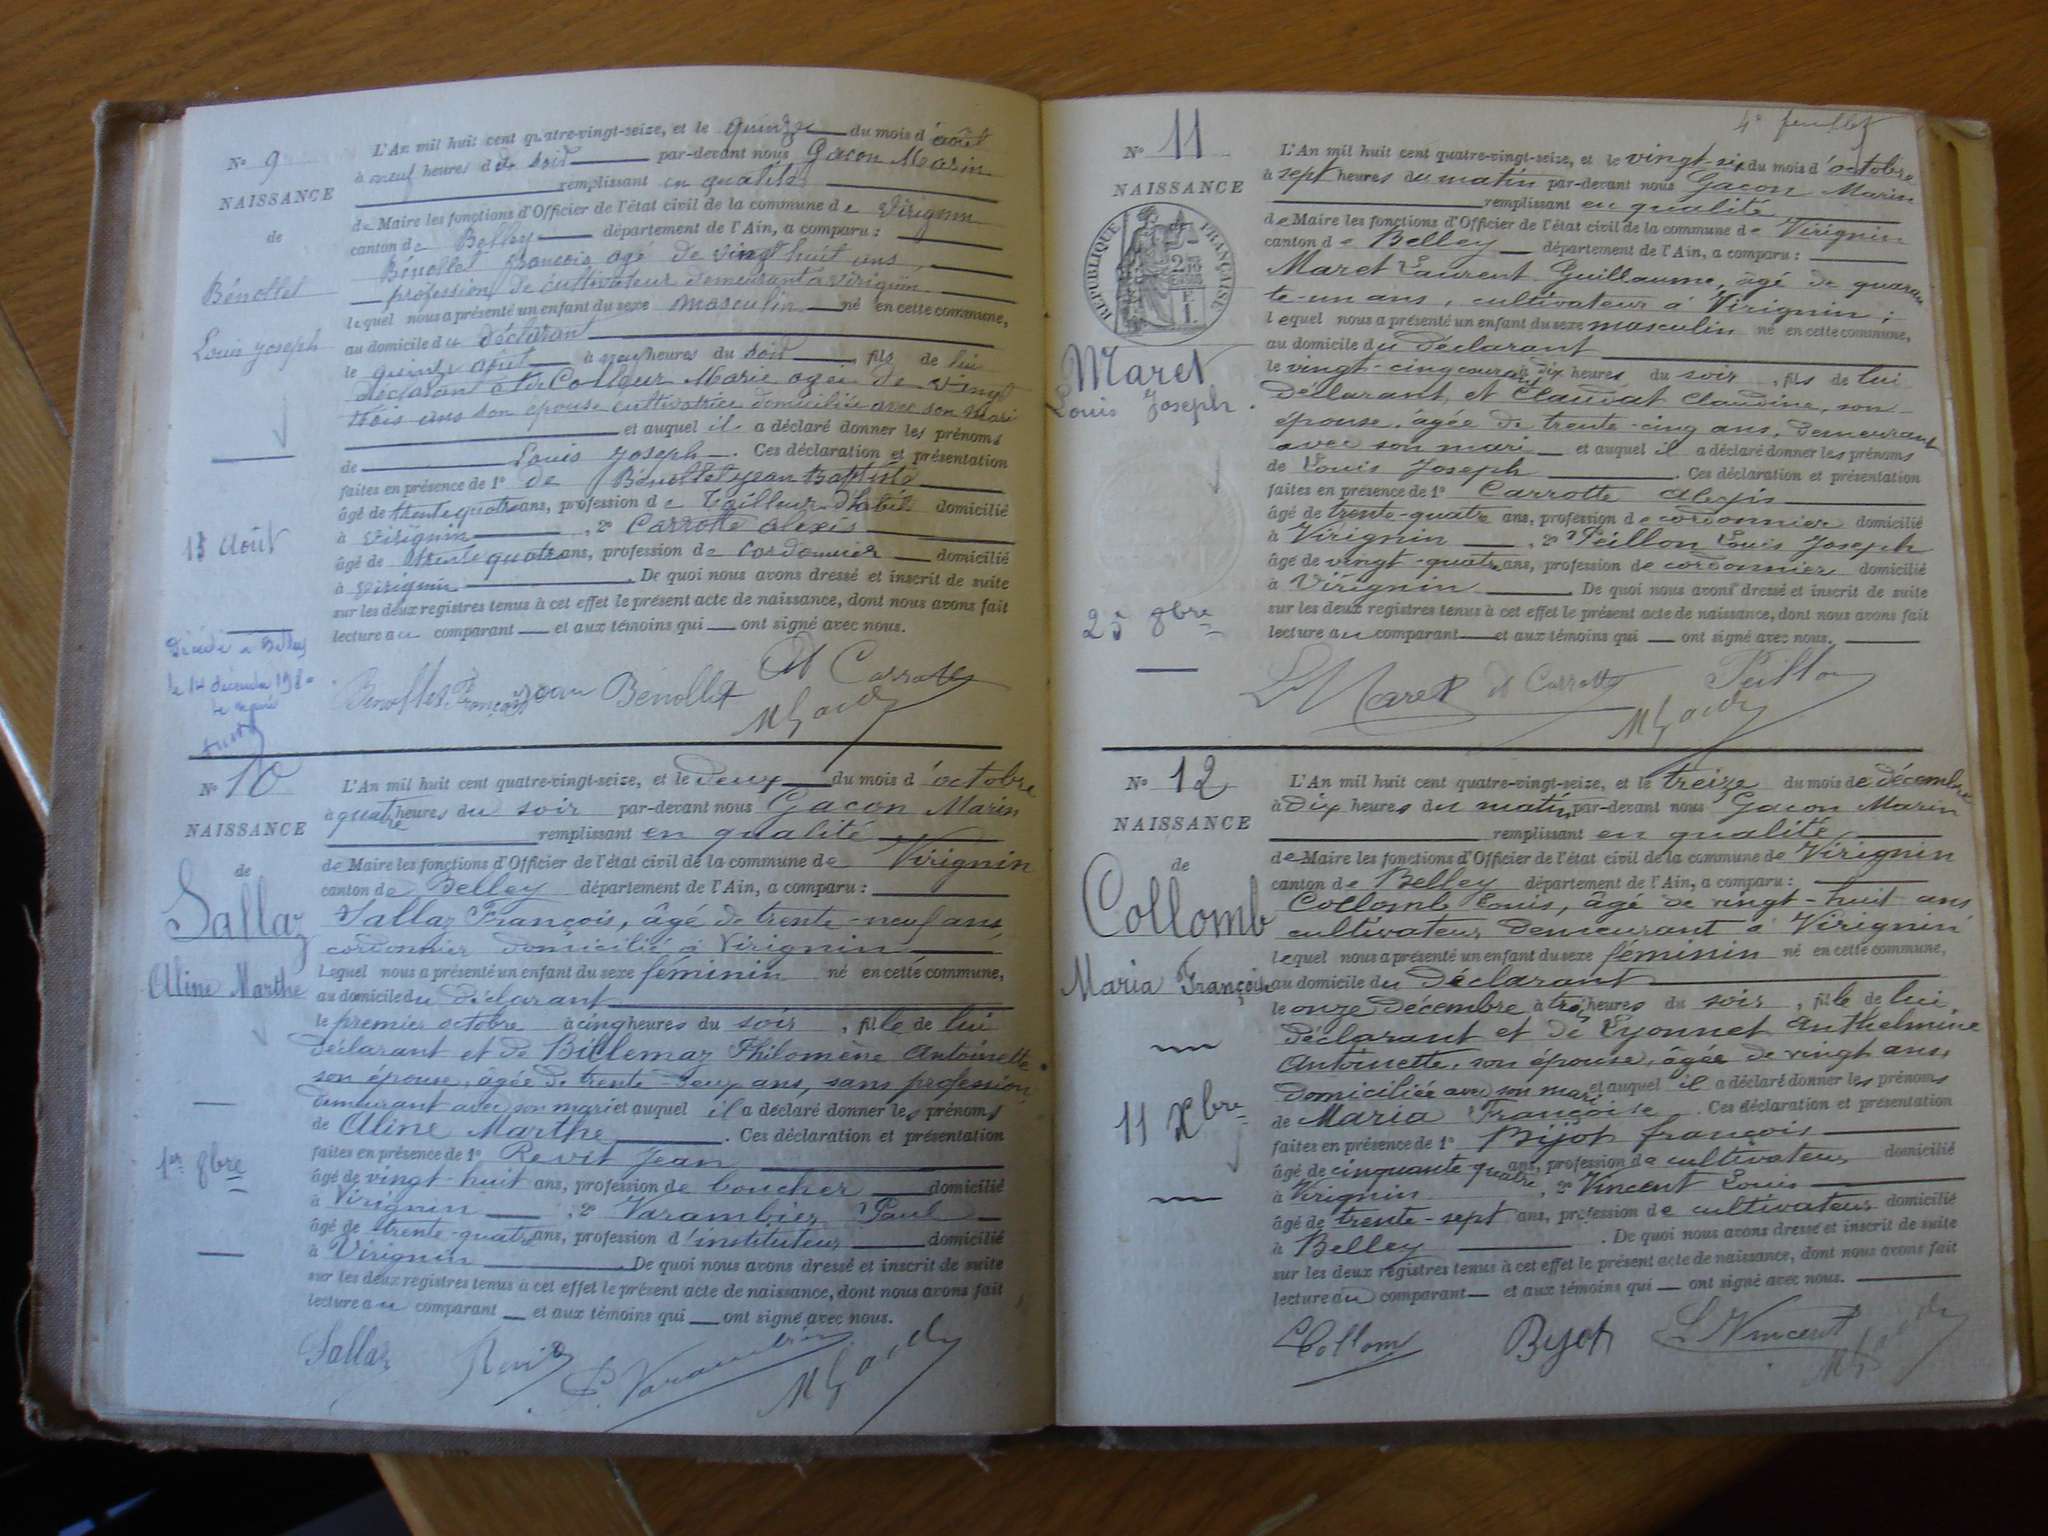 No 9
NAISSANCE
de
Bénollet
Louis Joseph
15 Août
Décédé à Belley
le 14 décembre
L'An mil huit cent quatre-vingt-seize, et le quinze du mois d'août
à neuf heures du soir par-devant nous Gacon Marin
remplissant en qualité
de Maire les fonctions d'Officier de l'état civil de la commune de Virignin
canton de Belley département de l'Ain, a comparu :
Bénollet françois agé de vingt huit ans
profession de cultivateur demeurant à Virignin
lequel nous a présenté un enfant du sexe masculin né en cette commune,
au domicile du déclarant
le quinze août à neuf heures du soir, fils de lui
déclarant et de Marie agée de vingt
trois ans son épouse cultivatrice domiciliée avec son mari
et auquel il a déclaré donner les prénoms
de Louis Joseph. Ces déclaration et présentation
faites en présence de 1º de Bénollet jean Baptiste
âgé de trente quatre ans, profession de Tailleur d'habit domicilié
à Virignin, 2º Carrotte alexis
âgé de trente quatre ans, profession de Cordonnier domicilié
à Virignin. De quoi nous avons dressé et inscrit de suite
sur les deux registres tenus à cet effet le présent acte de naissance, dont nous avons fait
lecture au comparant et aux témoins qui ont signé avec nous.
Benollet françois jean Bénollet At Carrotte
No 10
NAISSANCE
de
Sallaz
Aline Marthe
1er 8bre
L'An mil huit cent quatre-vingt-seize, et le deux du mois d'octobre
à quatre heures du soir par-devant nous Gacon Marin
remplissant en qualité
de Maire les fonctions d'Officier de l'état civil de la commune de Virignin
canton de Belley département de l'Ain, a comparu :
Sallaz François, âgé de trente-neuf ans,
cordonnier domicilié à Virignin
lequel nous a présenté un enfant du sexe féminin né en cette commune,
au domicile du déclarant
le premier octobre à cinq heures du soir, fille de lui
déclarant et de Billemaz Philomène Antoinette
son épouse, âgée de trente-deux ans, sans profession
demeurant avec son mari et auquel il a déclaré donner les prénoms
de Aline Marthe. Ces déclaration et présentation
faites en présence de 1º Revit Jean
âgé de vingt-huit ans, profession de boucher domicilié
à Virignin, 2º Varambier Paul
âgé de trente-quatre ans, profession d'instituteur domicilié
à Virignin De quoi nous avons dressé et inscrit de suite
sur les deux registres tenus à cet effet le présent acte de naissance, dont nous avons fait
lecture au comparant et aux témoins qui ont signé avec nous.
Sallaz Revit P. Varambier
4e feuillet
No 11
NAISSANCE
RÉPUBLIQUE FRANÇAISE
Maret
Louis Joseph.
25 8bre
L'An mil huit cent quatre-vingt-seize, et le vingt-six du mois d'octobre
à sept heures du matin par-devant nous Gacon Marin
remplissant en qualité
de Maire les fonctions d'Officier de l'état civil de la commune de Virignin
canton de Belley département de l'Ain, a comparu :
Maret Laurent Guillaume, âgé de quaran
te-un ans, cultivateur à Virignin ;
lequel nous a présenté un enfant du sexe masculin né en cette commune,
au domicile du déclarant
le vingt-cinq courant à dix heures du soir, fils de lui
déclarant et Claudat Claudine, son
épouse, âgée de trente-cinq ans, demeurant
avec son mari et auquel il a déclaré donner les prénoms
de Louis Joseph. Ces déclaration et présentation
faites en présence de 1º Carrotte Alexis
âgé de trente-quatre ans, profession de cordonnier domicilié
à Virignin, 2º Peillon Louis Joseph
âgé de vingt-quatre ans, profession de cordonnier domicilié
à Virignin. De quoi nous avons dressé et inscrit de suite
sur les deux registres tenus à cet effet le présent acte de naissance, dont nous avons fait
lecture au comparant et aux témoins qui ont signé avec nous.
L Maret At Carrotte Peillon
No 12
NAISSANCE
de
Collomb
Maria Françoise
11 Xbre
L'An mil huit cent quatre-vingt-seize, et le treize du mois de décembre
à dix heures du matin par-devant nous Gacon Marin
remplissant en qualité
de Maire les fonctions d'Officier de l'état civil de la commune de Virignin
canton de Belley département de l'Ain, a comparu :
Collomb Louis, âgé de vingt-huit ans
cultivateur demeurant à Virignin
lequel nous a présenté un enfant du sexe féminin né en cette commune,
au domicile du déclarant
le onze décembre à trois heures du soir, fille de lui
déclarant et de Lyonnet Anthelmine
Antoinette, son épouse, âgée de vingt ans,
domiciliée avec son mari et auquel il a déclaré donner les prénoms
de Maria Françoise. Ces déclaration et présentation
faites en présence de 1º Bijot françois
âgé de cinquante quatre ans, profession de cultivateur domicilié
à Virignin, 2º Vincent Louis
âgé de trente-sept ans, profession de cultivateur domicilié
à Belley. De quoi nous avons dressé et inscrit de suite
sur les deux registres tenus à cet effet le présent acte de naissance, dont nous avons fait
lecture au comparant et aux témoins qui ont signé avec nous.
Collom Bijot L Vincent